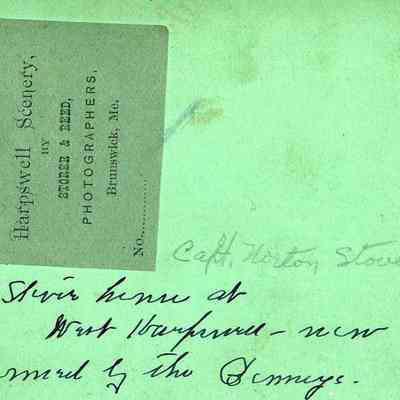 Harpswell Scenery,
BY
STORER & REED,
PHOTOGRAPHERS,
Brunswick, Me.
No..........
Capt. Norton Stove
home at
West Harpswell – now
by the